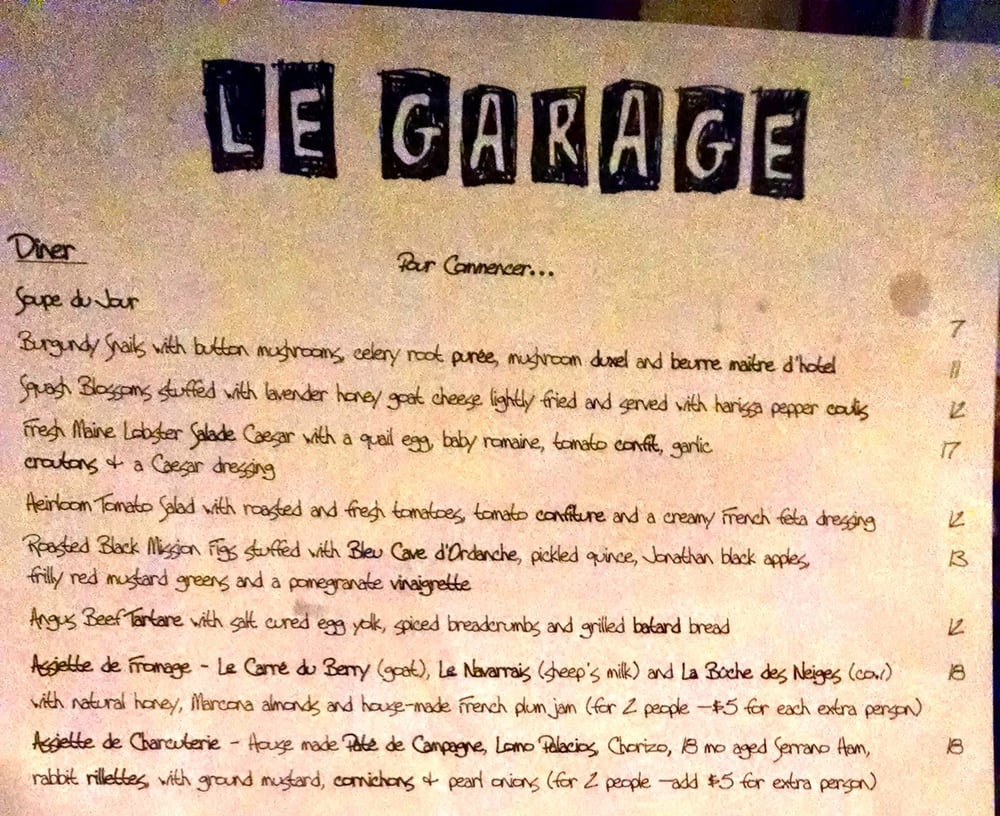 LE GARAGE
Dîner
Pour Commencer...
Soupe du Jour 7
Burgundy Snails with button mushrooms, celery root purée, mushroom duxel and beurre maître d'hotel 11
Squash Blossoms stuffed with lavender honey goat cheese lightly fried and served with harissa pepper coulis 12
Fresh Maine Lobster Salade Caesar with a quail egg, baby romaine, tomato confit, garlic 17
croutons + a Caesar dressing
Heirloom Tomato Salad with roasted and fresh tomatoes, tomato confiture and a creamy French feta dressing 12
Roasted Black Mission Figs stuffed with Bleu Cave d'Ordanche, pickled quince, Jonathan black apples, 13
frilly red mustard greens and a pomegranate vinaigrette
Angus Beef Tartare with salt cured egg yolk, spiced breadcrumbs and grilled batard bread 12
Assiette de Fromage - Le Carré du Berry (goat), Le Navarrais (sheep's milk) and La Bûche des Neiges (cow) 18
with natural honey, Marcona almonds and house-made French plum jam (for 2 people -$5 for each extra person)
Assiette de Charcuterie - House made Pâté de Campagne, Lomo Palacios, Chorizo, 18 mo aged Serrano Ham, 18
rabbit rillettes, with ground mustard, cornichons + pearl onions (for 2 people -add $5 for extra person)